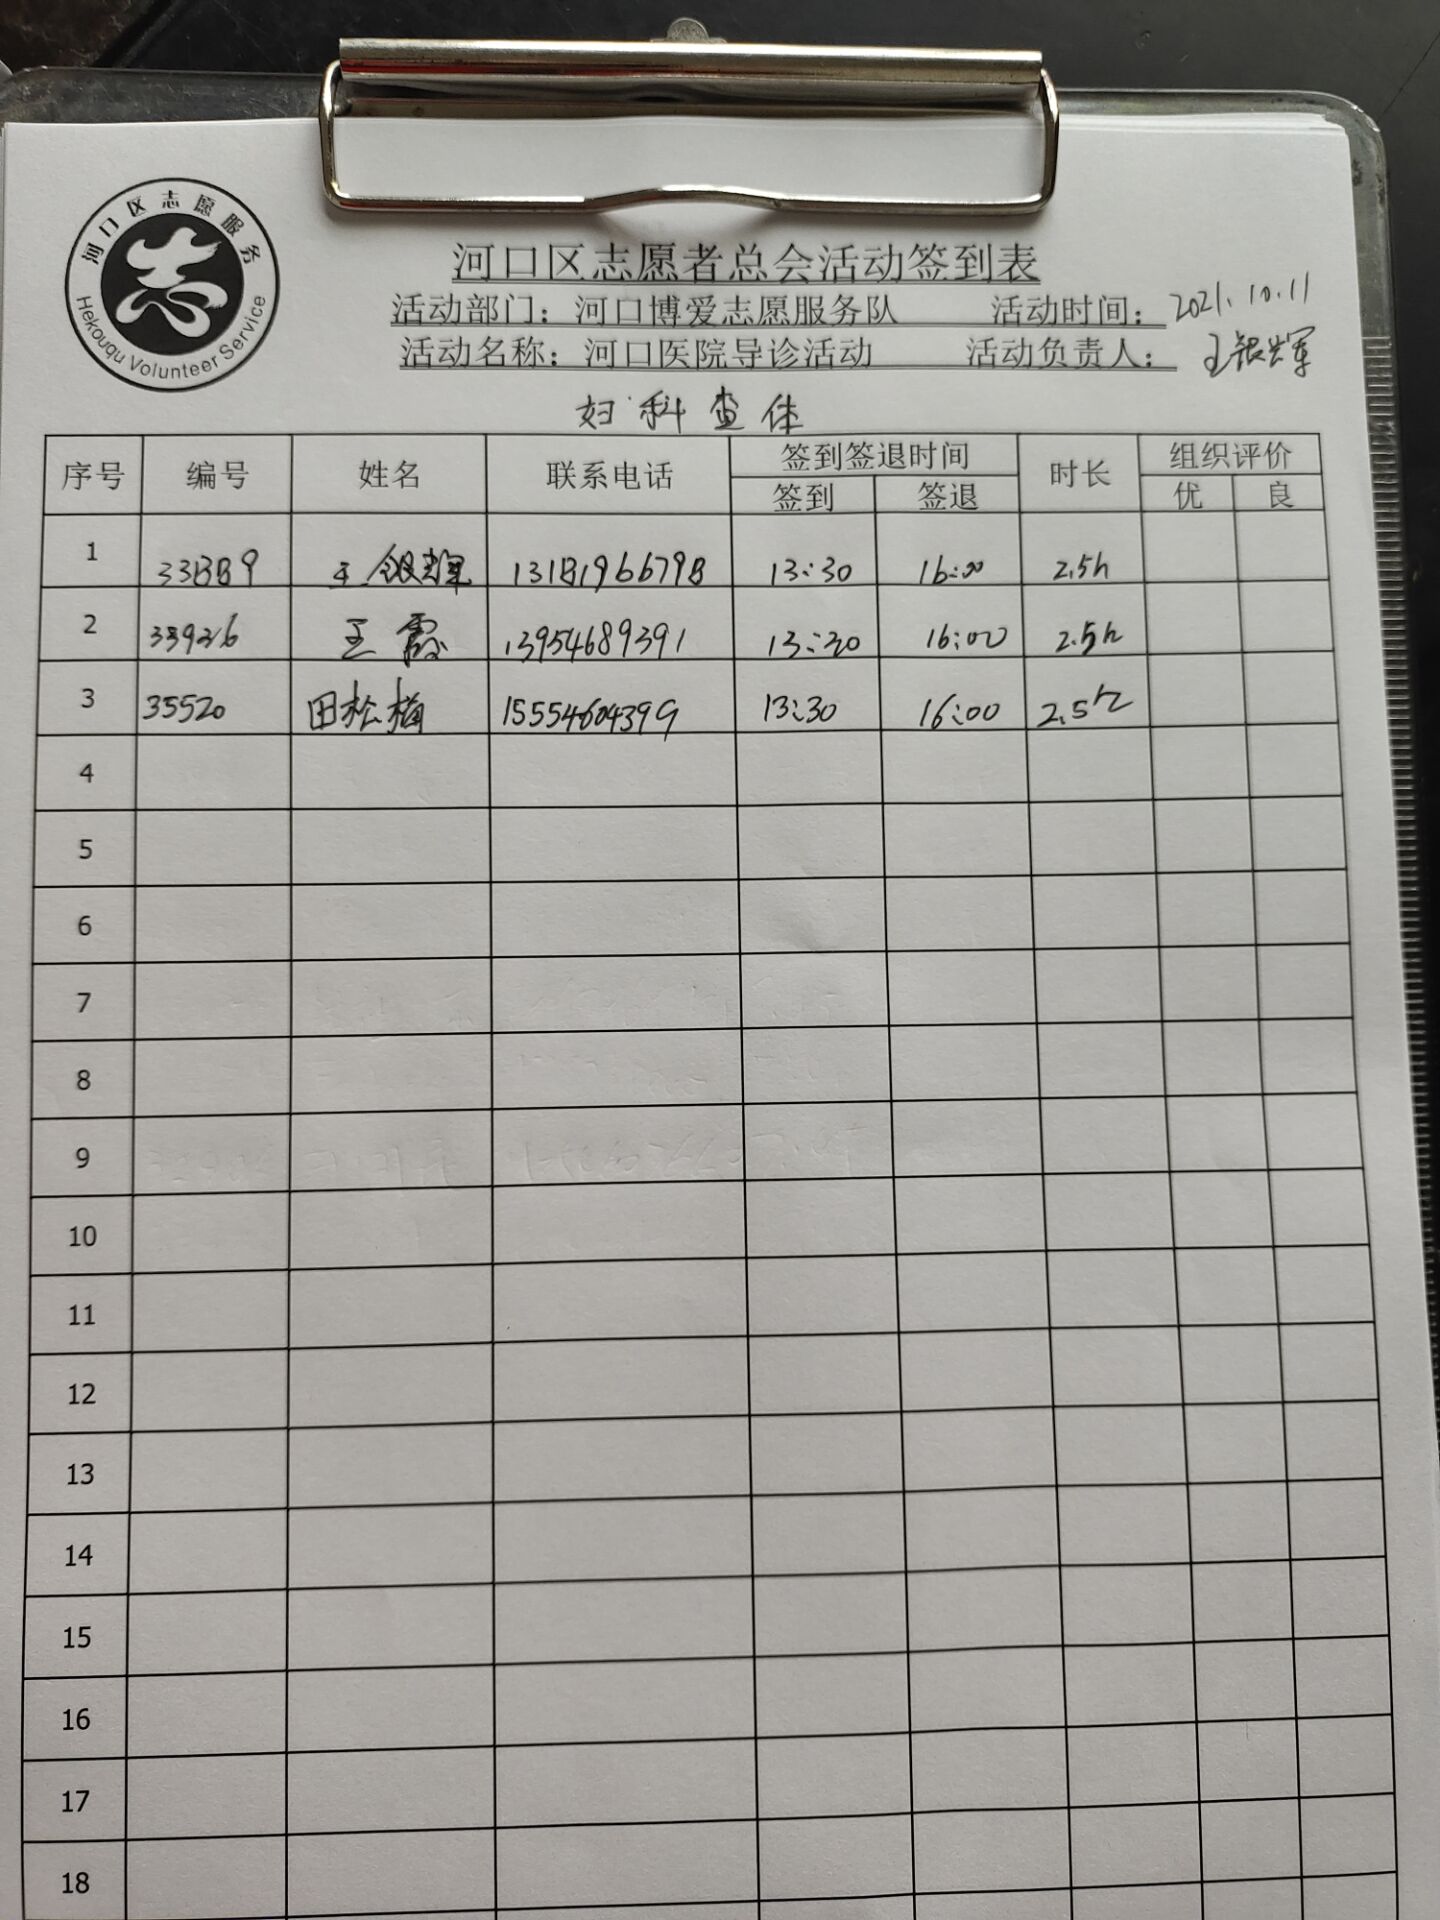 河口区志愿服务
Hekouqu Volunteer Service
志
河口区志愿者总会活动签到表
活动部门：河口博爱志愿服务队 活动时间：2021.10.11
活动名称：河口医院导诊活动 活动负责人：王银辉
妇科查体
序号 编号 姓名 联系电话 签到签退时间 时长 组织评价
签到 签退 优 良
1 33889 王银辉 13181966798 13:30 16:00 2.5h
2 王霞 13954689391 13:30 16:00 2.5h
3 35520 田松梅 15554604399 13:30 16:00 2.5h
4
5
6
7
8
9
10
11
12
13
14
15
16
17
18